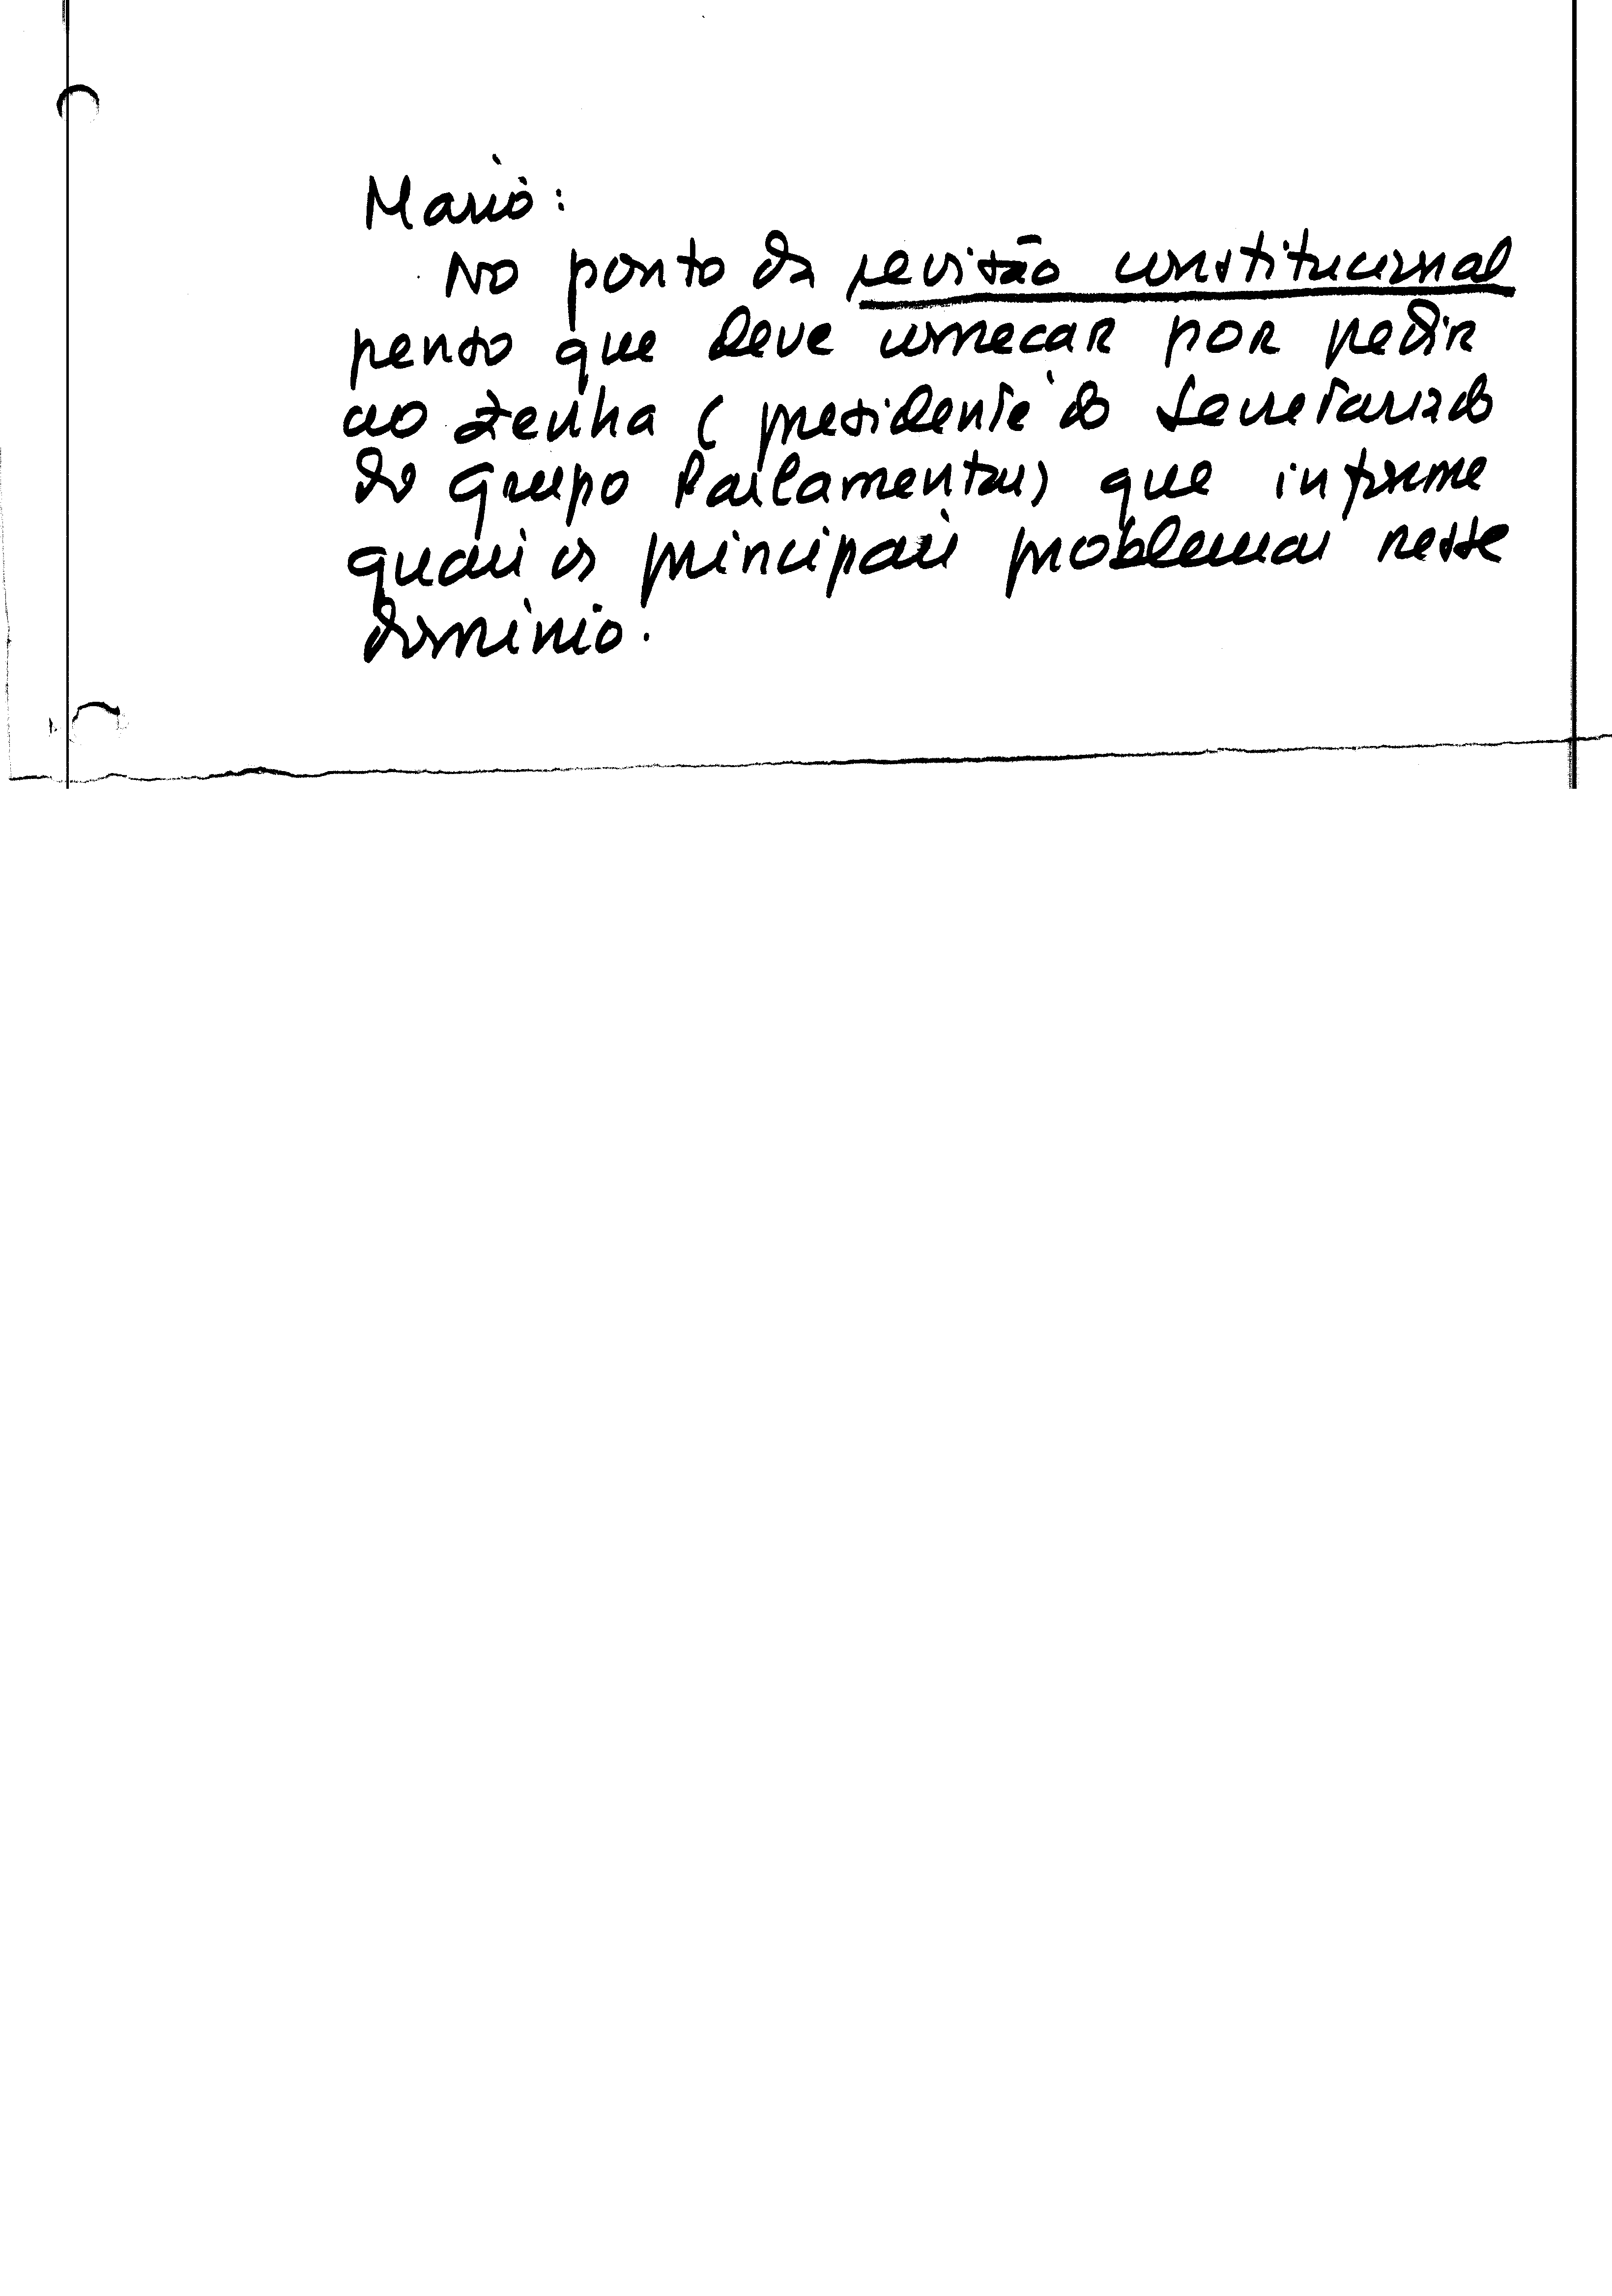 Mário:
No ponto da revisão constitucional
penso que deve começar por pedir
ao Zenha (presidente do Secretariado
do Grupo Parlamentar) que informe
quais os principais problemas nesse
domínio.